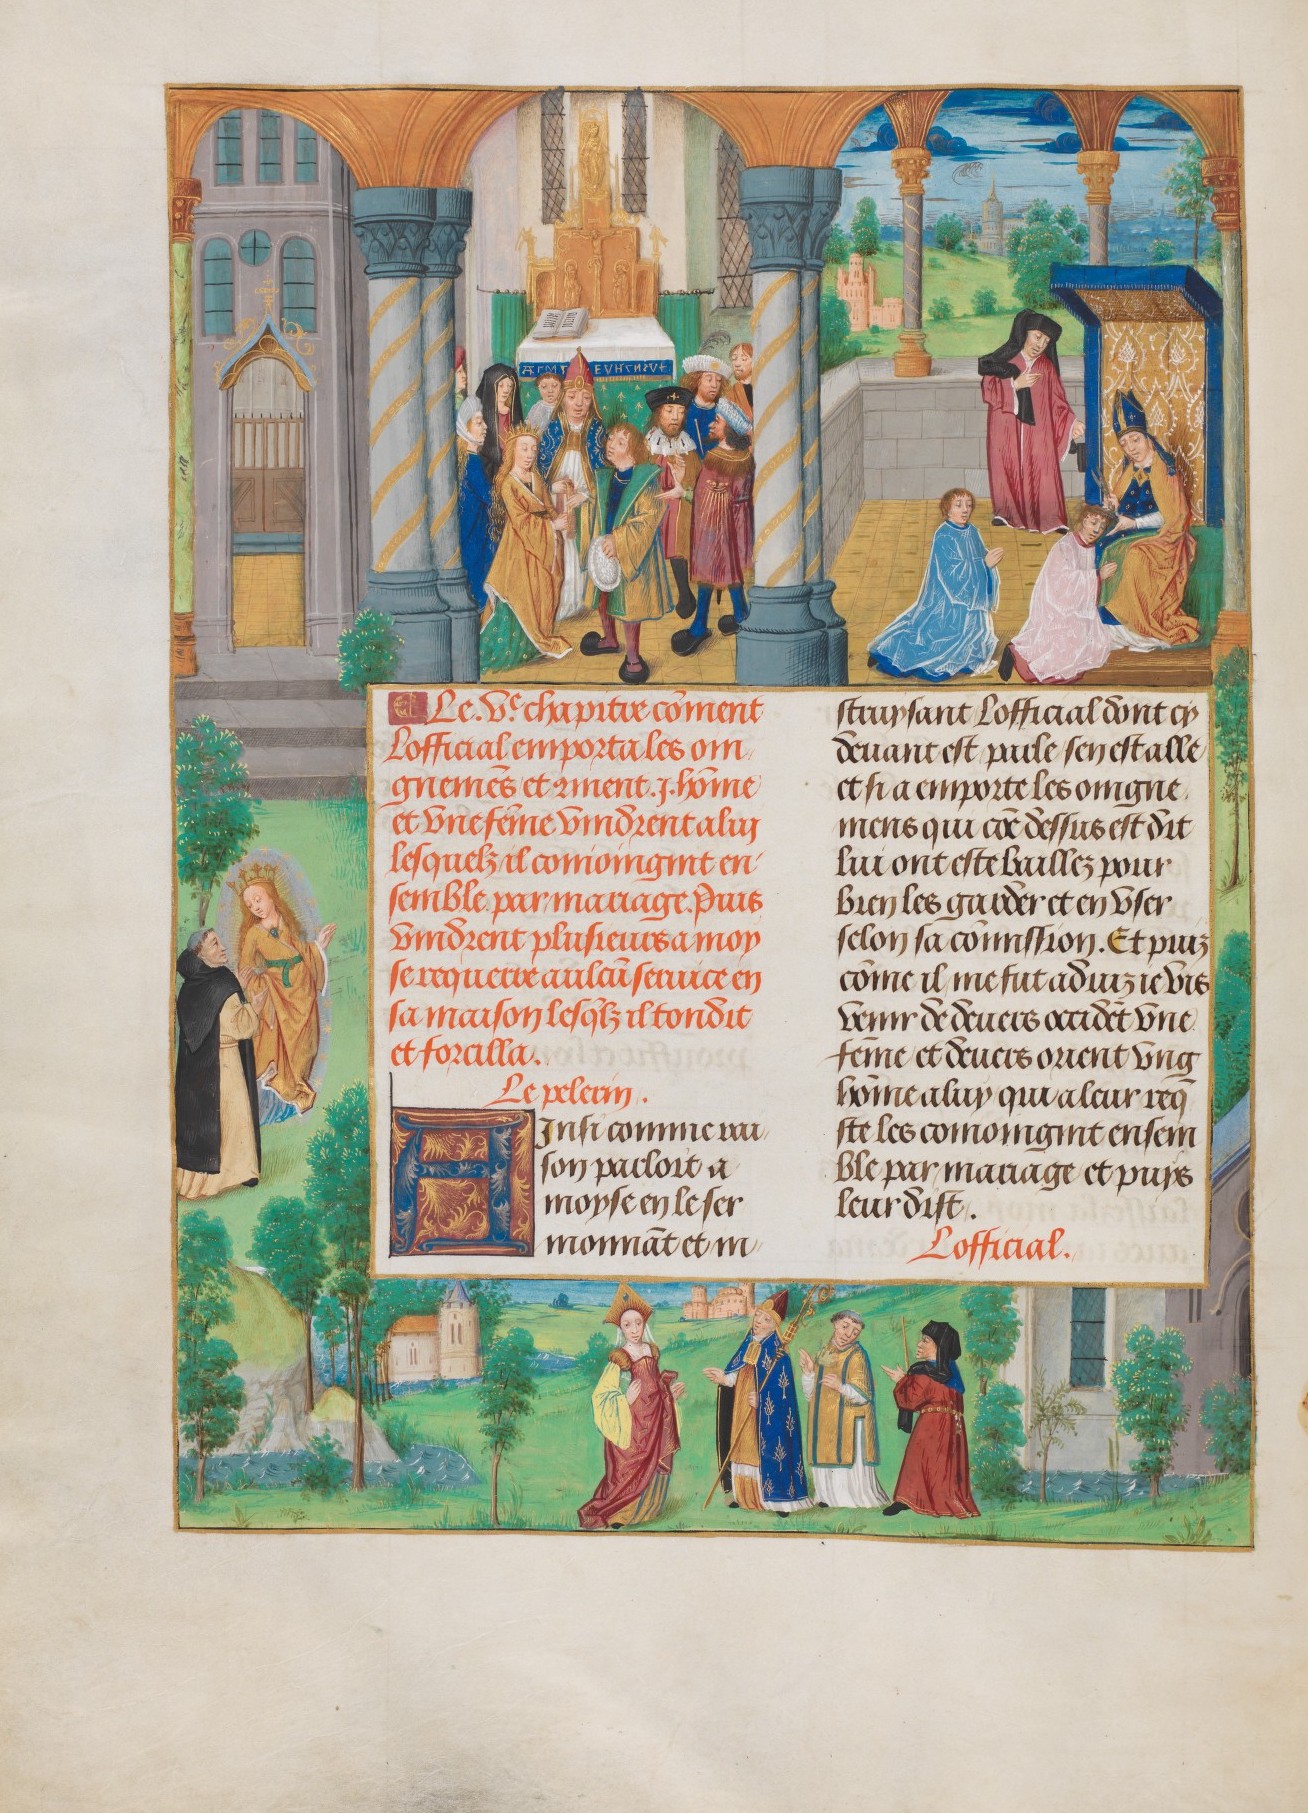 Le .Ve. chapitre cōment
Lofficial emporta les oin
gnemēs et ꝯment .j. hōme
et vne fēme vindrent a luy
lesquelz il conioingint en
semble par mariage. Puis
vindrent plusieurs a moy
se requerre aulcū seruice en
sa maison lesq̄lz il tondit
et forcilla.
Le pelerin.
Ainsi comme rai
son parloit a
moyse en le ser
monnāt et in
struysant Lofficial dont cy
deuant est parle sen est alle
et si a emporte les oingne
mens qui cōe dessus est dit
lui ont este baillez pour
bien les garder et en vser
selon sa cōmission. Et puiz
cōme il me fut aduiz ie vis
venir de deuers occidēt vne
fēme et deuers orient vng
hōme a luy qui a leur req̄
ste les conioingint ensem
ble par mariage et puys
leur dist.
Lofficial.